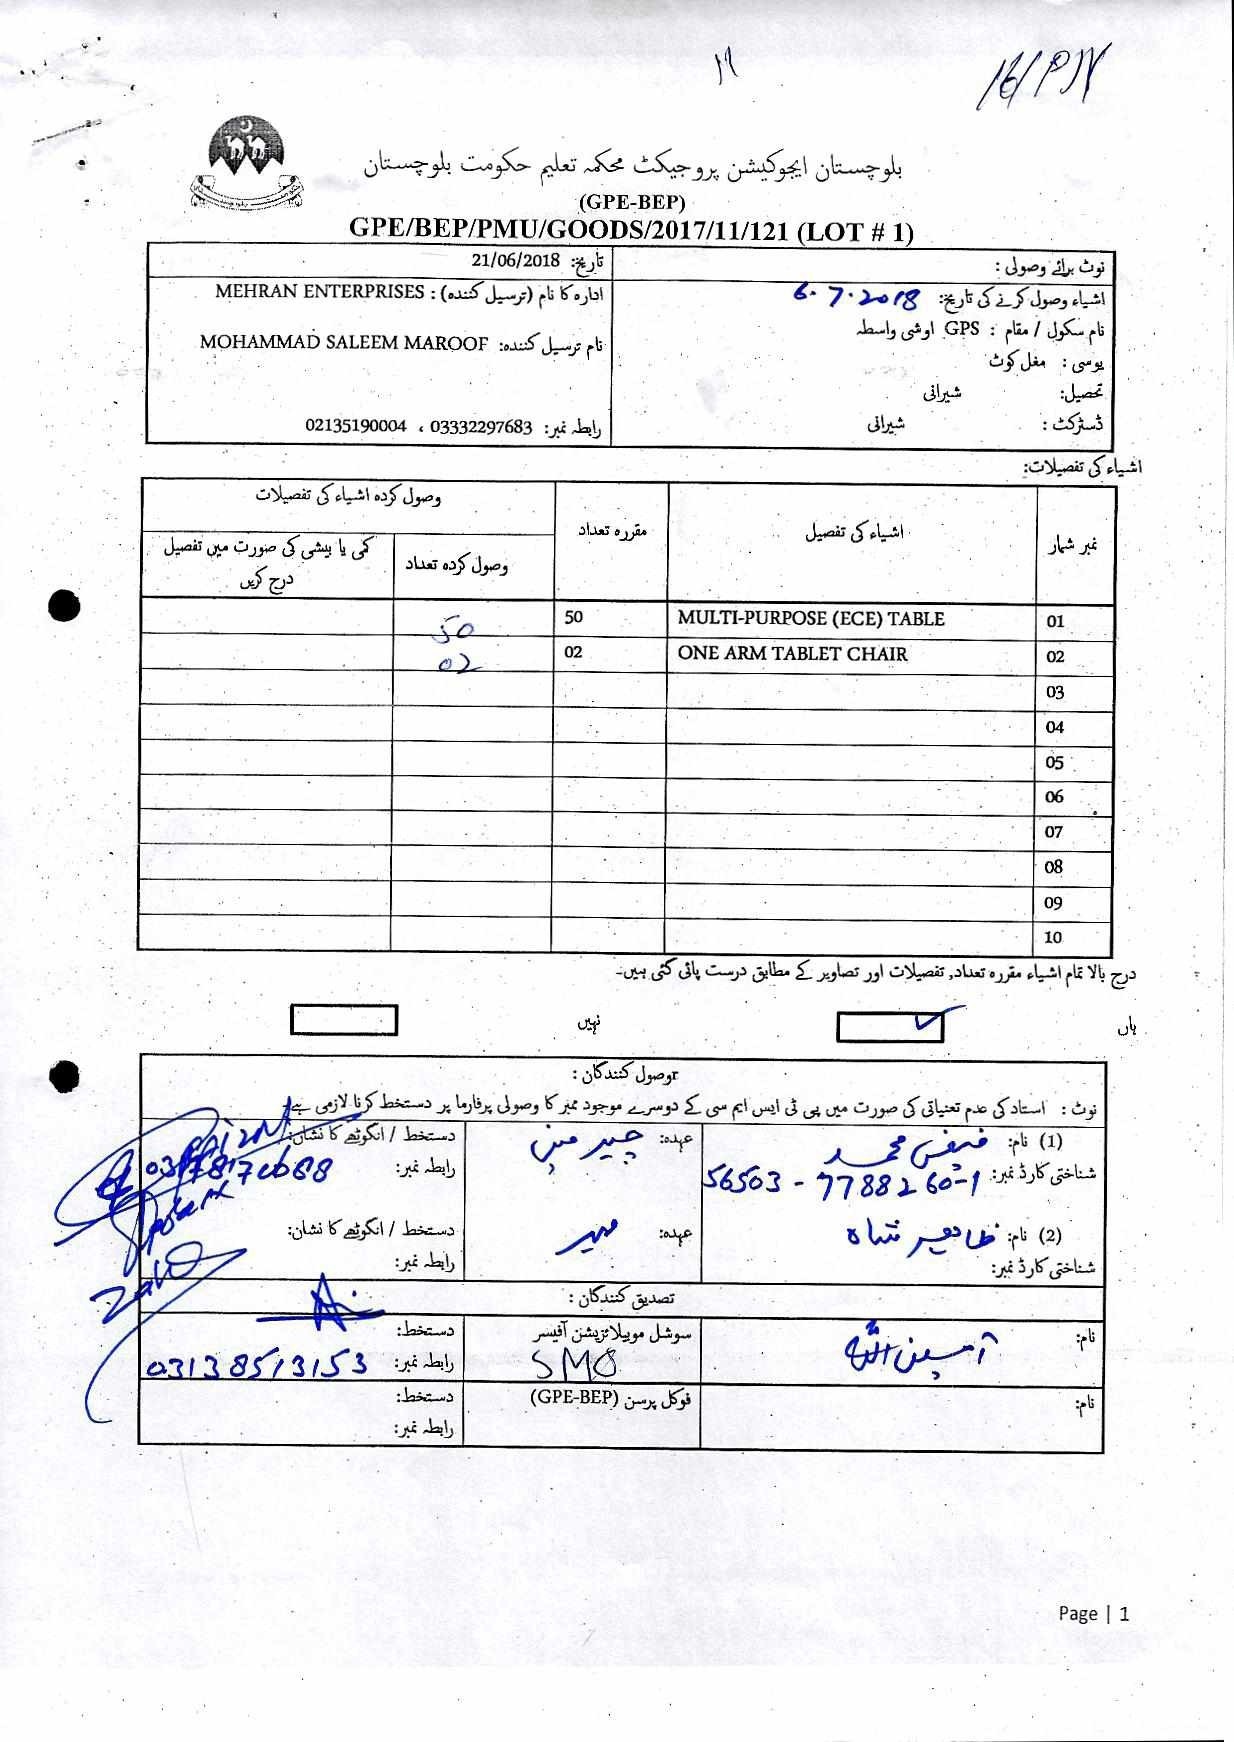 بلوچستان ایجوکیشن پروجیکٹ محکمہ تعلیم حکومت بلوچستان
(GPE-BEP)
GPE/BEP/PMU/GOODS/2017/11/121 (LOT # 1)
نوٹ برائے وصولی :
تاریخ: 21/06/2018
اشیاء وصول کرنے کی تاریخ: 6.7.2018
ادارہ کا نام (ترسیل کنندہ) : MEHRAN ENTERPRISES
نام سکول / مقام : GPS اوشی واسطہ
نام ترسیل کنندہ: MOHAMMAD SALEEM MAROOF
یوسی : مغل کوٹ
تحصیل: شیرانی
ڈسٹرکٹ : شیرانی
رابطہ نمبر: 03332297683 ، 02135190004
اشیاء کی تفصیلات:
نمبر شمار اشیاء کی تفصیل مقررہ تعداد وصول کردہ اشیاء کی تفصیلات
وصول کردہ تعداد کمی یا بیشی کی صورت میں تفصیل
درج کریں
01 MULTI-PURPOSE (ECE) TABLE 50 50
02 ONE ARM TABLET CHAIR 02 02
03
04
05
06
07
08
09
10
درج بالا تمام اشیاء مقررہ تعداد, تفصیلات اور تصاویر کے مطابق درست پائی گئی ہیں۔
ہاں ✓ نہیں
وصول کنندگان :
نوٹ : استاد کی عدم تعنیاتی کی صورت میں پی ٹی ایس ایم سی کے دوسرے موجود ممبر کا وصولی پرفارما پر دستخط کرنا لازمی ہے۔
(1) نام: فیض محمد عہدہ: چیئرمین دستخط / انگوٹھے کا نشان:
شناختی کارڈ نمبر: 56503-7788260-1 رابطہ نمبر:
(2) نام: ظاہر شاہ عہدہ: ممبر دستخط / انگوٹھے کا نشان:
شناختی کارڈ نمبر: رابطہ نمبر:
تصدیق کنندگان :
نام: آمین اللہ سوشل موبیلائزیشن آفیسر دستخط:
SMO رابطہ نمبر: 03138513153
نام: فوکل پرسن (GPE-BEP) دستخط:
رابطہ نمبر:
Page | 1